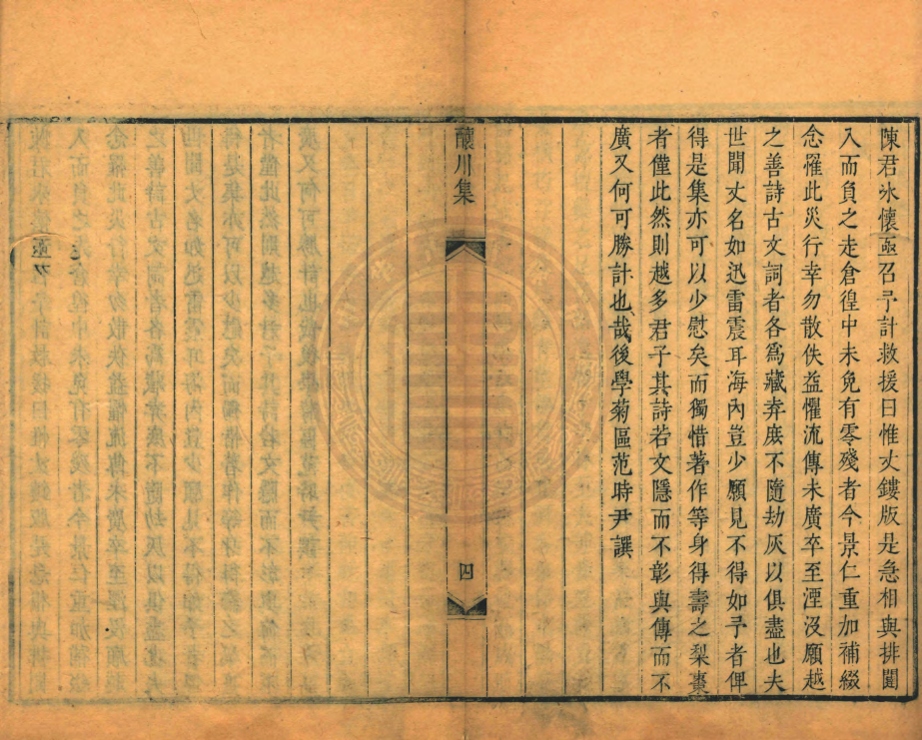 陳君氷懷亟召予計救援曰惟丈鏤版是急相與排闥
入而負之走倉徨中未免有零殘者今景仁重加補綴
念罹此災行幸勿散佚益懼流傳未廣卒至湮沒願越
之善詩古文詞者各爲藏弆庶不隨劫灰以俱盡也夫
世聞丈名如迅雷震耳海內豈少願見不得如予者俾
得是集亦可以少慰矣而獨惜著作等身得壽之梨棗
者僅此然則越多君子其詩若文隱而不彰與傳而不
廣又何可勝計也哉後學菊區范時尹譔
釀川集
四